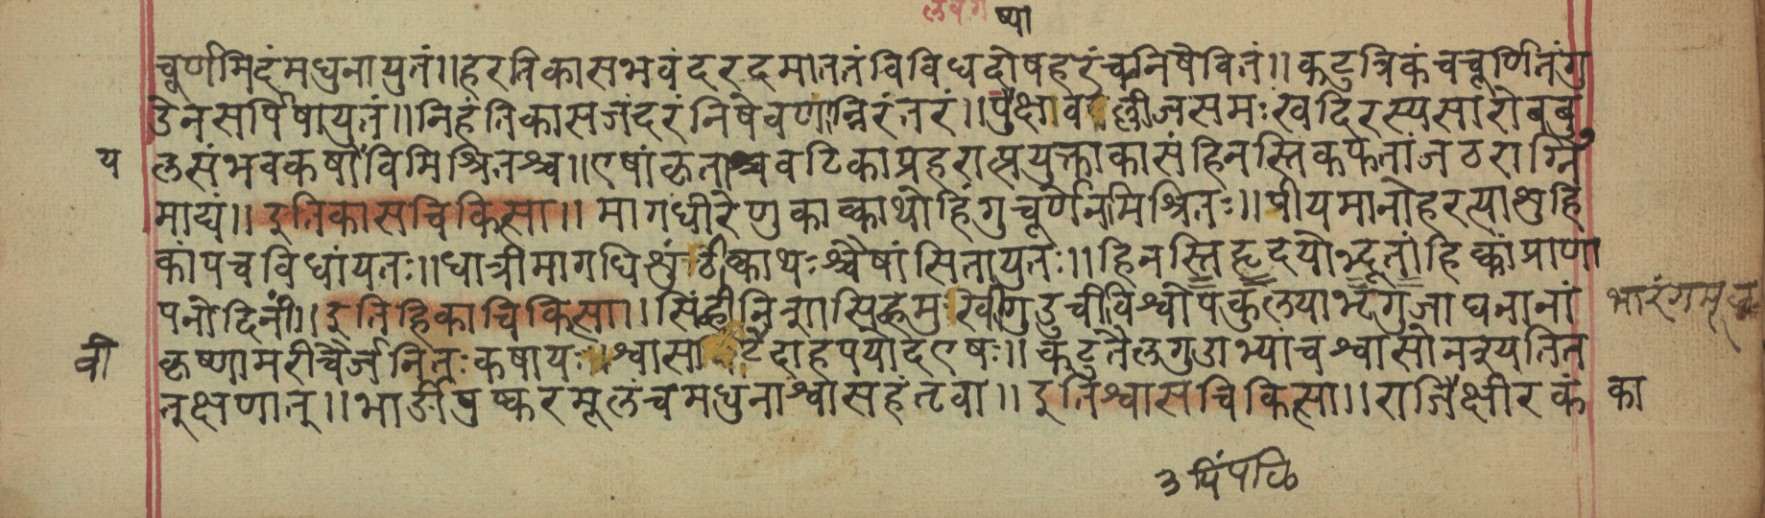 लवग ष्या
चूर्णमिदंमधुनायुतं॥हरतिकासभवंदरदमाततंविविधदोषहरंचनिषेवितं॥कटुत्रिकंचचूर्णितंगु
डेनसर्पिषायुतं॥निहंतिकासजंदरंनिषेवणान्निरंतरं॥ समःखदिरस्यसारोबबु
य लसंभवकषांविमिश्रितश्च॥एषांकृताश्चवटिकाप्रहरात्प्रयुक्ताकासंहिनस्तिकफतांजठराग्नि
माद्यं॥इतिकासचिकित्सा॥मागधीरेणुकाक्काथोहिंगुचूर्णेनमिश्रितः॥पीयमानोहरत्याशुहि
कांपचविधांयतः॥धात्रीमागधिशुंठीक्काथःश्चैषांसितायुतः॥हिनस्तिहृदयोद्भूतांहिक्कांप्राणा
पनोदिनीं॥इतिहिकाचिकित्सा॥ गुडुचीविश्वोपकुल्या घनानां
वी कृष्णामरीचैर्जनितःकषायः॥श्वासा दाहपयोदएषः॥कटुतैलगुडाभ्यांचश्वासोनश्यतित
त्क्षणात्॥भार्ङीपुष्करमूलंचमधुनाश्वासहंतवा॥इतिश्वासचिकित्सा॥राजिक्षीरकं का
३ पिंपळि